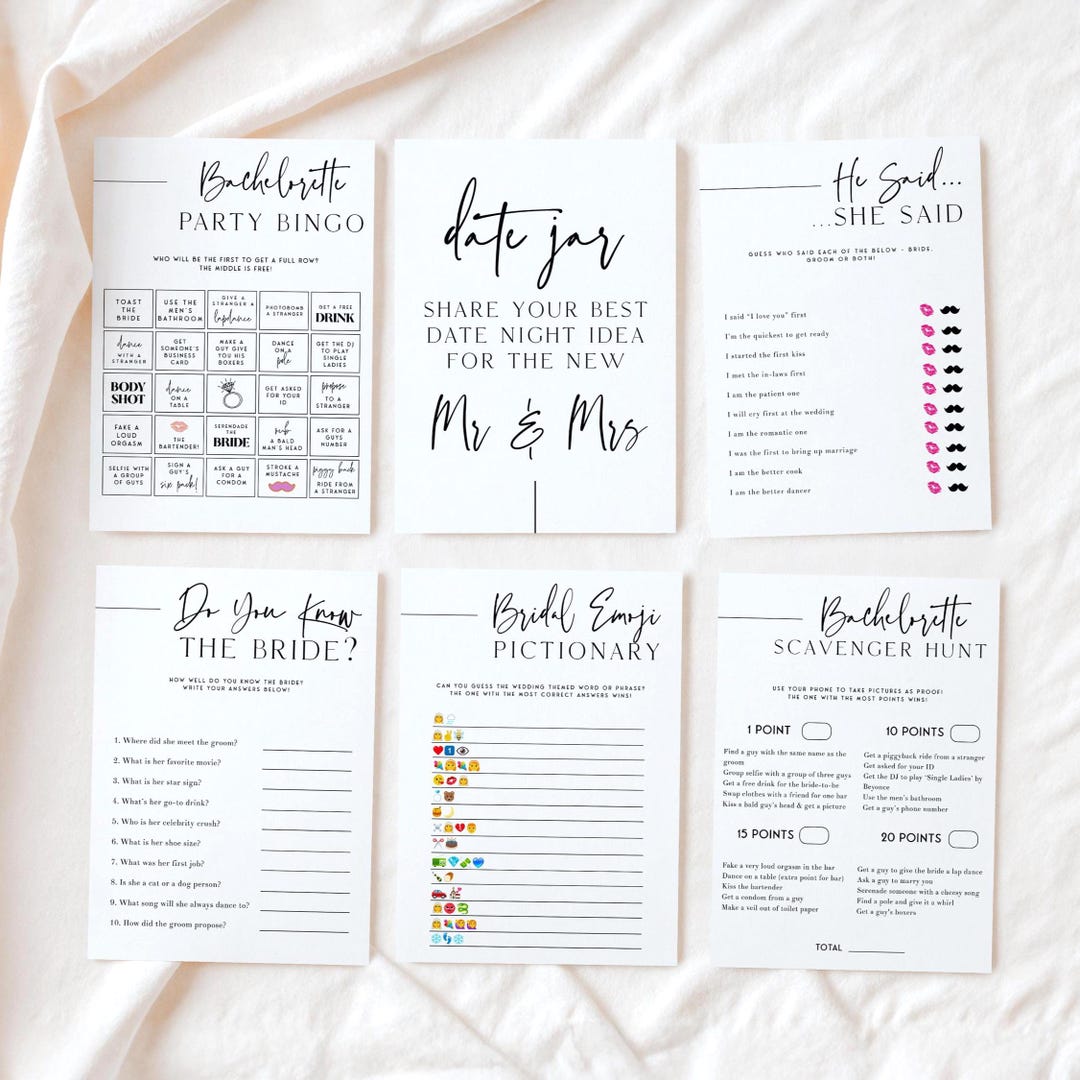 Bachelorette
PARTY BINGO
WHO WILL BE THE FIRST TO GET A FULL ROW?
THE MIDDLE IS FREE!
TOAST THE BRIDE
USE THE MEN'S BATHROOM
GIVE A STRANGER A lapdance
PHOTOBOMB A STRANGER
GET A FREE DRINK
dance WITH A STRANGER
GET SOMEONE'S BUSINESS CARD
MAKE A GUY GIVE YOU HIS BOXERS
DANCE ON A pole
GET THE DJ TO PLAY SINGLE LADIES
BODY SHOT
dance ON A TABLE
GET ASKED FOR YOUR ID
propose TO A STRANGER
FAKE A LOUD ORGASM
THE BARTENDER!
SERENDADE THE BRIDE
rub A BALD MAN'S HEAD
ASK FOR A GUYS NUMBER
SELFIE WITH A GROUP OF GUYS
SIGN A GUY'S six pack!
ASK A GUY FOR A CONDOM
STROKE A MUSTACHE
piggy back RIDE FROM A STRANGER
date jar
SHARE YOUR BEST
DATE NIGHT IDEA
FOR THE NEW
Mr & Mrs
He Said...
...SHE SAID
GUESS WHO SAID EACH OF THE BELOW - BRIDE,
GROOM OR BOTH!
I said "I love you" first
I'm the quickest to get ready
I started the first kiss
I met the in-laws first
I am the patient one
I will cry first at the wedding
I am the romantic one
I was the first to bring up marriage
I am the better cook
I am the better dancer
Do You Know
THE BRIDE?
HOW WELL DO YOU KNOW THE BRIDE?
WRITE YOUR ANSWERS BELOW!
1. Where did she meet the groom?
2. What is her favorite movie?
3. What is her star sign?
4. What's her go-to drink?
5. Who is her celebrity crush?
6. What is her shoe size?
7. What was her first job?
8. Is she a cat or a dog person?
9. What song will she always dance to?
10. How did the groom propose?
Bridal Emoji
PICTIONARY
CAN YOU GUESS THE WEDDING THEMED WORD OR PHRASE?
THE ONE WITH THE MOST CORRECT ANSWERS WINS!
Bachelorette
SCAVENGER HUNT
USE YOUR PHONE TO TAKE PICTURES AS PROOF!
THE ONE WITH THE MOST POINTS WINS!
1 POINT
Find a guy with the same name as the
groom
Group selfie with a group of three guys
Get a free drink for the bride-to-be
Swap clothes with a friend for one bar
Kiss a bald guy's head & get a picture
10 POINTS
Get a piggyback ride from a stranger
Get asked for your ID
Get the DJ to play 'Single Ladies' by
Beyonce
Use the men's bathroom
Get a guy's phone number
15 POINTS
Fake a very loud orgasm in the bar
Dance on a table (extra point for bar)
Kiss the bartender
Get a condom from a guy
Make a veil out of toilet paper
20 POINTS
Get a guy to give the bride a lap dance
Ask a guy to marry you
Serenade someone with a cheesy song
Find a pole and give it a whirl
Get a guy's boxers
TOTAL